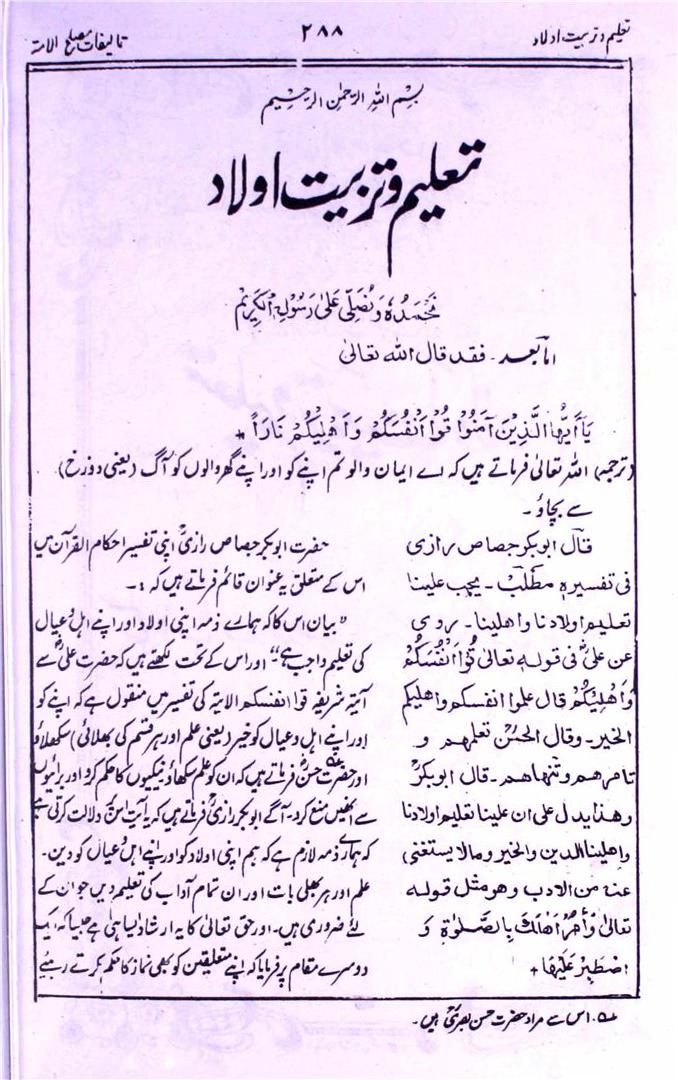 تعلیم و تربیت اولاد
۲۸۸
تالیفات مصلح الامۃ
بِسْمِ اللهِ الرَّحْمٰنِ الرَّحِيْمِ
تعلیم و تربیت اولاد
نَحْمَدُهٗ وَنُصَلِّيْ عَلٰى رَسُوْلِهِ الْكَرِيْمِ
اما بعد ۔ فقد قال الله تعالیٰ
يَا أَيُّهَا الَّذِيْنَ آمَنُوْا قُوْا أَنْفُسَكُمْ وَأَهْلِيْكُمْ نَارًا +
(ترجمہ) اللہ تعالیٰ فرماتے ہیں کہ اے ایمان والو تم اپنے کو اور اپنے گھر والوں کو آگ (یعنی دوزخ)
سے بچاؤ ۔
قال ابوبکر جصاص رازی
فی تفسیرہ مطلب ۔ یجب علینا
تعلیم اولادنا و اھلینا ۔ روی
عن علیؓ فی قولہ تعالیٰ قُوْا اَنْفُسَكُمْ
وَاَهْلِيْكُمْ قال علموا انفسکم واھلیکم
الخیر ۔ وقال الحسنؒ تعلمھم و
تامرھم وتنھاھم ۔ قال ابوبکرؒ
وھذا یدل علی ان علینا تعلیم اولادنا
واھلینا الدین والخیر ومالا یستغنی
عنہ من الادب وھو مثل قولہ
تعالیٰ وَأْمُرْ اَهْلَكَ بِالصَّلٰوةِ وَ
اصْطَبِرْ عَلَيْهَا +
حضرت ابوبکر جصاص رازیؒ اپنی تفسیر احکام القرآن میں
اس کے متعلق یہ عنوان قائم فرماتے ہیں کہ :۔
"بیان اس کا کہ ہمارے ذمہ اپنی اولاد اور اپنے اہل وعیال
کی تعلیم واجب ہے"۔ اور اس کے تحت لکھتے ہیں کہ حضرت علیؓ سے
آیۃ شریفہ قوا انفسکم الایۃ کی تفسیر میں منقول ہے کہ اپنے کو
اور اپنے اہل وعیال کو خیر (یعنی علم اور ہر قسم کی بھلائی) سکھلاؤ
اور حضرت حسنؒ فرماتے ہیں کہ ان کو علم سکھاؤ نیکیوں کا حکم کرو اور برائیوں
سے انھیں منع کرو ۔ آگے ابوبکر رازیؒ فرماتے ہیں کہ یہ آیت اس پر دلالت کرتی ہے
کہ ہمارے ذمہ لازم ہے کہ ہم اپنی اولاد کو اور اپنے اہل وعیال کو دین ۔
علم اور ہر بھلی بات اور ان تمام آداب کی تعلیم دیں جو ان کے
لئے ضروری ہیں ۔ اور حق تعالیٰ کا یہ ارشاد ایسا ہی ہے جیسا کہ ایک
دوسرے مقام پر فرمایا کہ اپنے متعلقین کو بھی نماز کا حکم کرتے رہیئے
؎ اس سے مراد حضرت حسن بصریؒ ہیں ۔